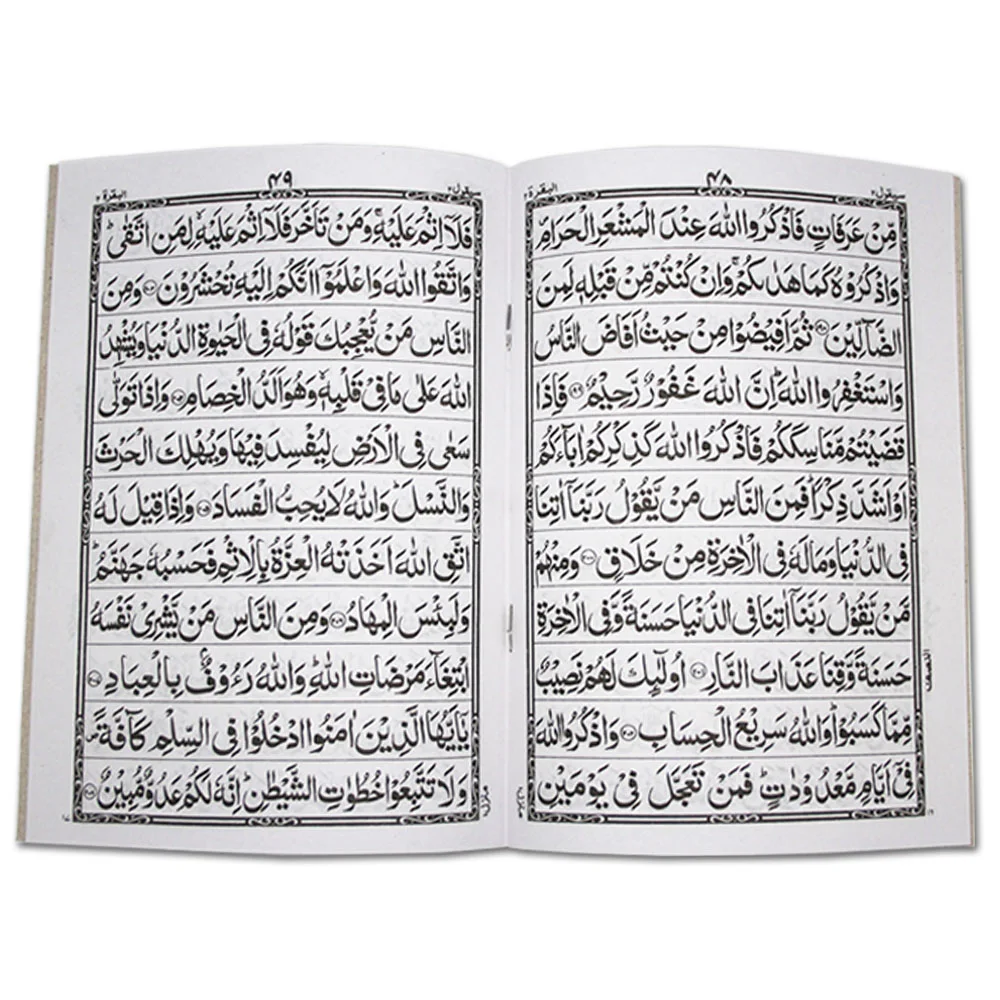 سیقول ۲ ۴۸ البقرة ۲
مِّنْ عَرَفَاتٍ فَاذْكُرُوا اللّٰهَ عِنْدَ الْمَشْعَرِ الْحَرَامِ
وَاذْكُرُوْهُ كَمَا هَدٰىكُمْ ۚ وَاِنْ كُنْتُمْ مِّنْ قَبْلِهٖ لَمِنَ
الضَّآلِّيْنَ ۝۱۹۸ ثُمَّ اَفِيْضُوْا مِنْ حَيْثُ اَفَاضَ النَّاسُ
وَاسْتَغْفِرُوا اللّٰهَ ؕ اِنَّ اللّٰهَ غَفُوْرٌ رَّحِيْمٌ ۝۱۹۹ فَاِذَا
قَضَيْتُمْ مَّنَاسِكَكُمْ فَاذْكُرُوا اللّٰهَ كَذِكْرِكُمْ اٰبَآءَكُمْ
اَوْ اَشَدَّ ذِكْرًا ؕ فَمِنَ النَّاسِ مَنْ يَّقُوْلُ رَبَّنَاۤ اٰتِنَا
فِى الدُّنْيَا وَمَا لَهٗ فِى الْاٰخِرَةِ مِنْ خَلَاقٍ ۝۲۰۰ وَمِنْهُمْ
مَّنْ يَّقُوْلُ رَبَّنَاۤ اٰتِنَا فِى الدُّنْيَا حَسَنَةً وَّفِى الْاٰخِرَةِ
حَسَنَةً وَّقِنَا عَذَابَ النَّارِ ۝۲۰۱ اُولٰٓئِكَ لَهُمْ نَصِيْبٌ
مِّمَّا كَسَبُوْا ؕ وَاللّٰهُ سَرِيْعُ الْحِسَابِ ۝۲۰۲ وَاذْكُرُوا اللّٰهَ
فِىْۤ اَيَّامٍ مَّعْدُوْدٰتٍ ؕ فَمَنْ تَعَجَّلَ فِىْ يَوْمَيْنِ
النصف
سیقول ۲ ۴۹ البقرة ۲
فَلَاۤ اِثْمَ عَلَيْهِ ۚ وَمَنْ تَاَخَّرَ فَلَاۤ اِثْمَ عَلَيْهِ ۙ لِمَنِ اتَّقٰى ؕ
وَاتَّقُوا اللّٰهَ وَاعْلَمُوْۤا اَنَّكُمْ اِلَيْهِ تُحْشَرُوْنَ ۝۲۰۳ وَمِنَ
النَّاسِ مَنْ يُّعْجِبُكَ قَوْلُهٗ فِى الْحَيٰوةِ الدُّنْيَا وَيُشْهِدُ
اللّٰهَ عَلٰى مَا فِىْ قَلْبِهٖ ۙ وَهُوَ اَلَدُّ الْخِصَامِ ۝۲۰۴ وَاِذَا تَوَلّٰى
سَعٰى فِى الْاَرْضِ لِيُفْسِدَ فِيْهَا وَيُهْلِكَ الْحَرْثَ
وَالنَّسْلَ ؕ وَاللّٰهُ لَا يُحِبُّ الْفَسَادَ ۝۲۰۵ وَاِذَا قِيْلَ لَهُ
اتَّقِ اللّٰهَ اَخَذَتْهُ الْعِزَّةُ بِالْاِثْمِ فَحَسْبُهٗ جَهَنَّمُ ؕ
وَلَبِئْسَ الْمِهَادُ ۝۲۰۶ وَمِنَ النَّاسِ مَنْ يَّشْرِىْ نَفْسَهُ
ابْتِغَآءَ مَرْضَاتِ اللّٰهِ ؕ وَاللّٰهُ رَءُوْفٌۢ بِالْعِبَادِ ۝۲۰۷
يٰۤاَيُّهَا الَّذِيْنَ اٰمَنُوا ادْخُلُوْا فِى السِّلْمِ كَآفَّةً ۪
وَلَا تَتَّبِعُوْا خُطُوٰتِ الشَّيْطٰنِ ؕ اِنَّهٗ لَكُمْ عَدُوٌّ مُّبِيْنٌ ۝۲۰۸
منزل ۱